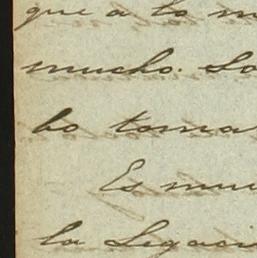 que a lo m
mucho. Lo
bo toma
Es muy
la Legaci